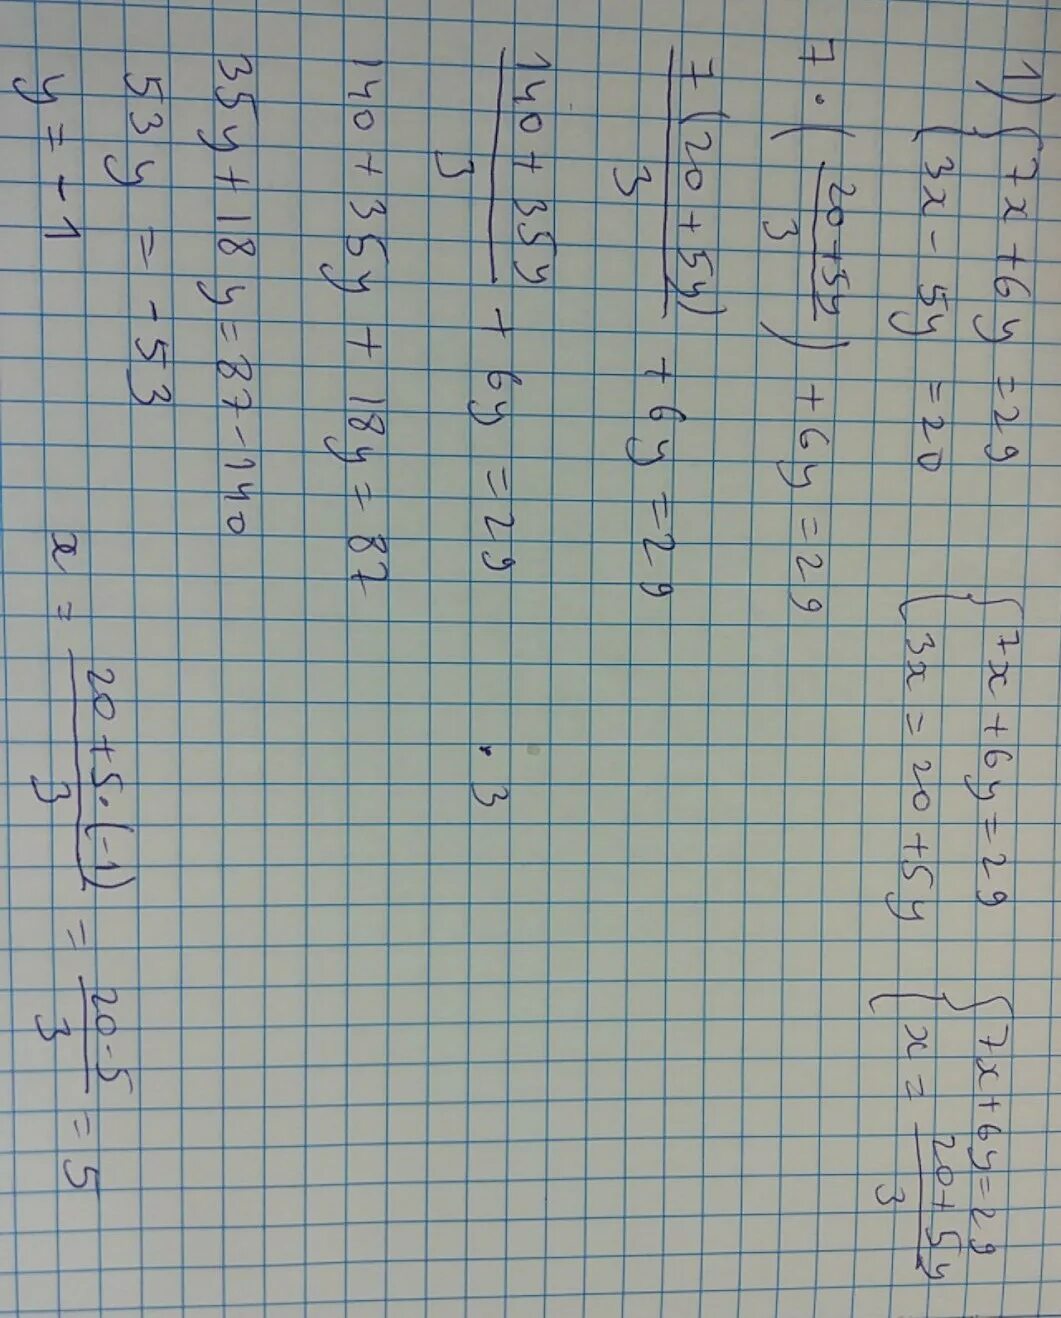 1) { 7x + 6y = 29 { 7x + 6y = 29 { 7x + 6y = 29
{ 3x - 5y = 20 { 3x = 20 + 5y { x = (20 + 5y)/3
7 · ( (20 + 5y)/3 ) + 6y = 29
7(20 + 5y)/3 + 6y = 29
(140 + 35y)/3 + 6y = 29 · 3
140 + 35y + 18y = 87
35y + 18y = 87 - 140
53y = -53
y = -1 x = (20 + 5·(-1))/3 = (20 - 5)/3 = 5